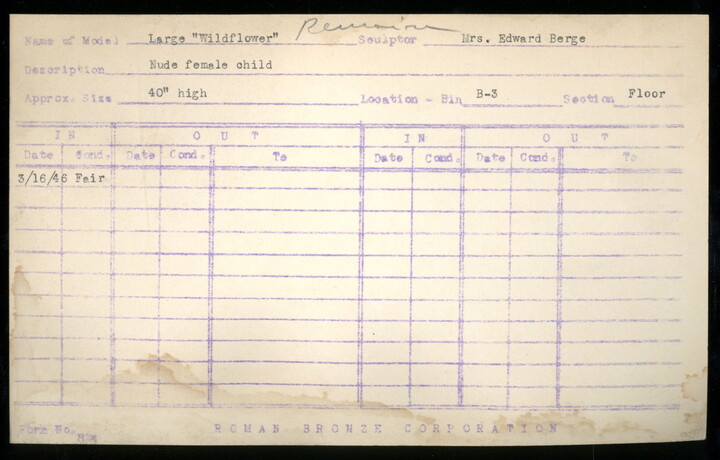 Remains
Name of Model Large "Wildflower" Sculptor Mrs. Edward Berge
Description Nude female child
Approx. Size 40" high Location - Bin B-3 Section Floor
IN OUT IN OUT
Date Cond. Date Cond. To Date Cond. Date Cond. To
3/16/46 Fair
Form No.
ROMAN BRONZE CORPORATION